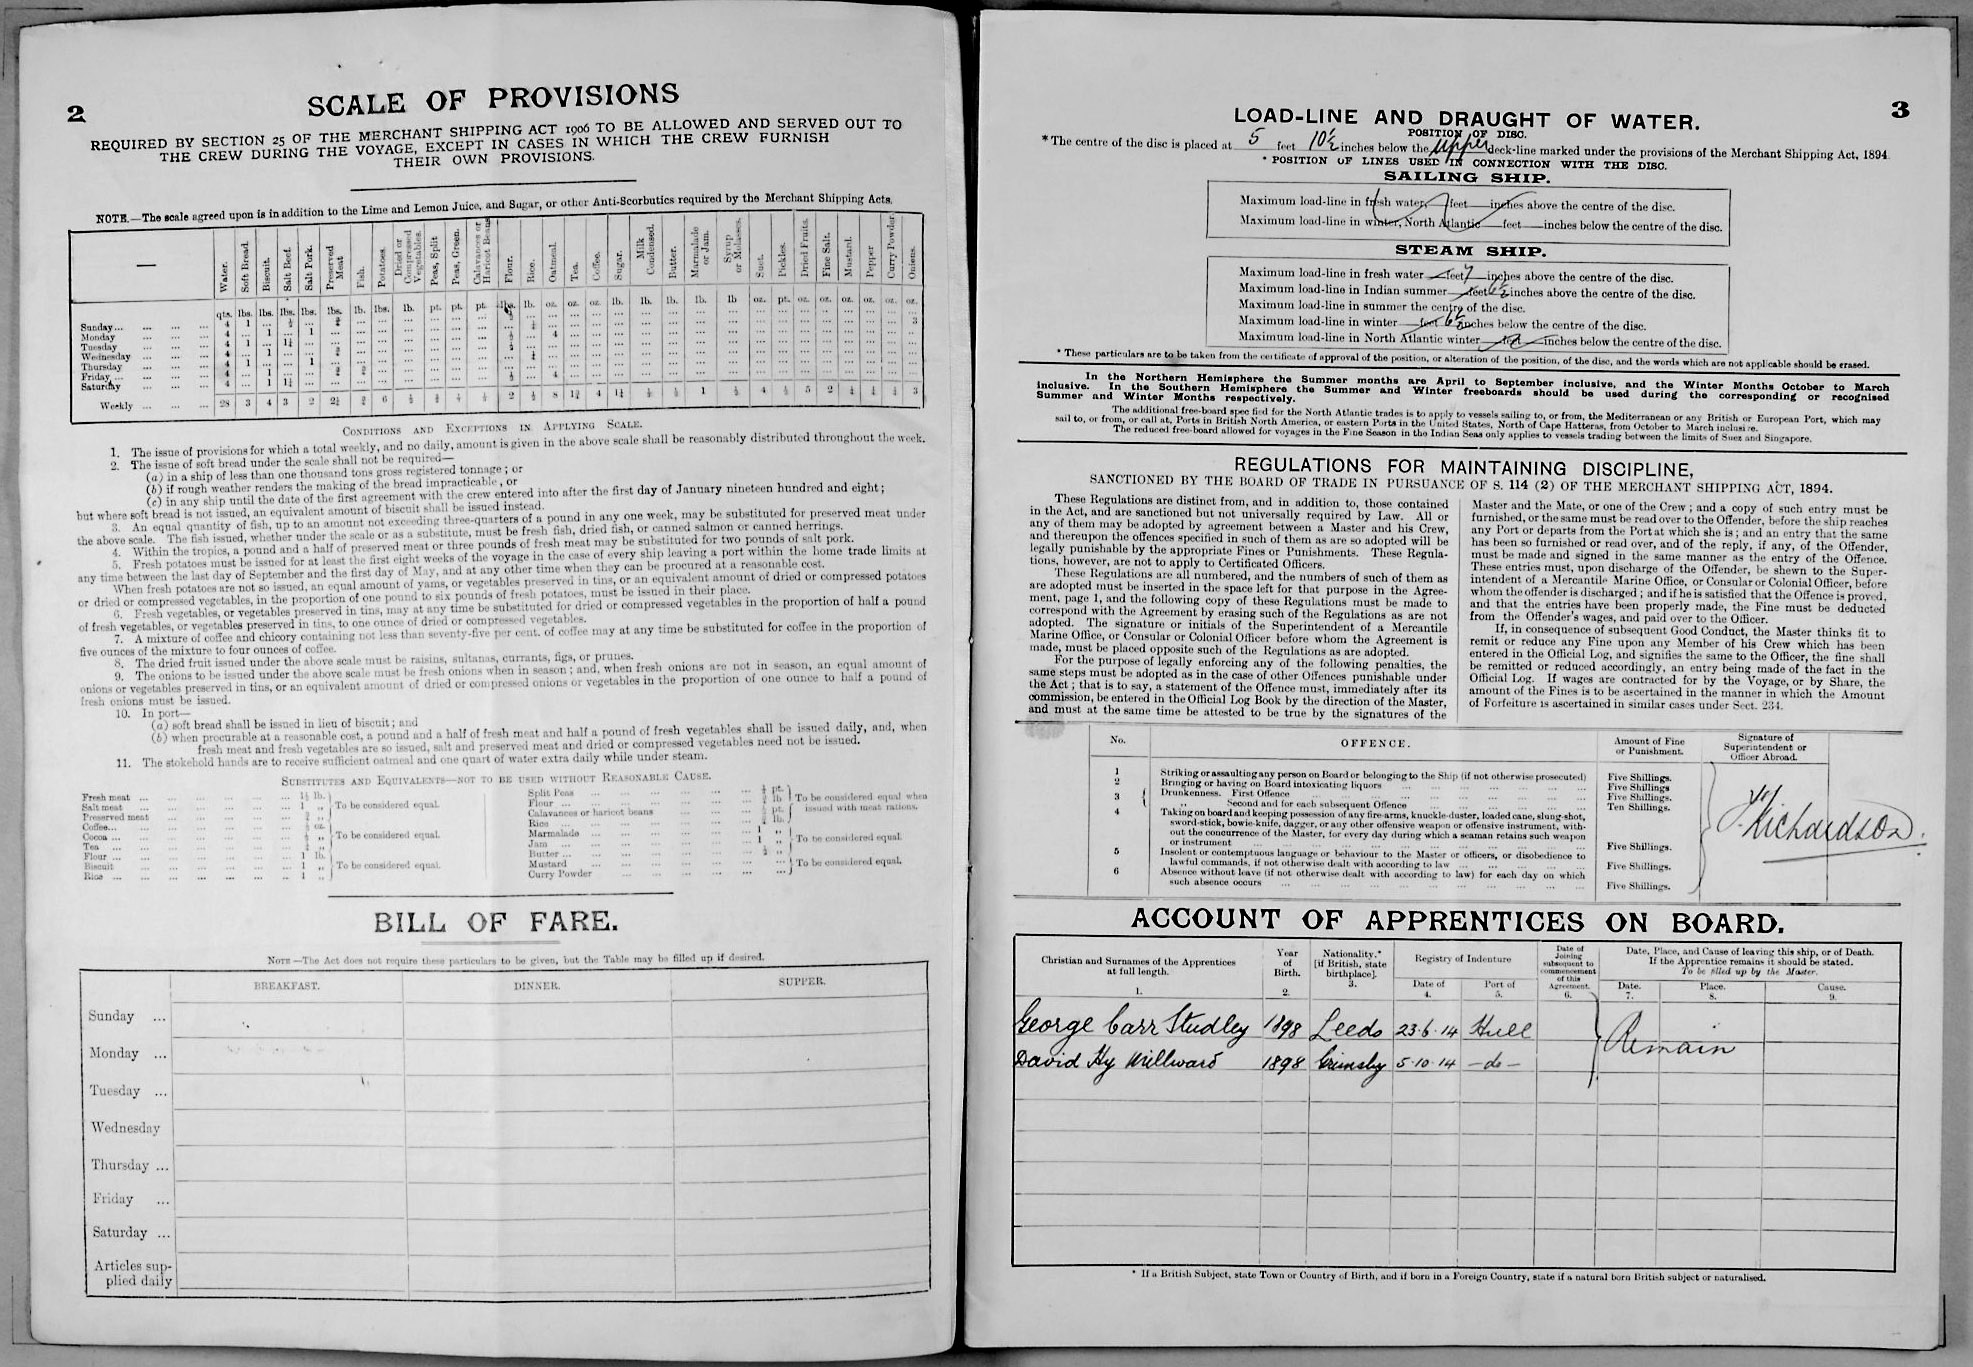 2
SCALE OF PROVISIONS
REQUIRED BY SECTION 25 OF THE MERCHANT SHIPPING ACT 1906 TO BE ALLOWED AND SERVED OUT TO
THE CREW DURING THE VOYAGE, EXCEPT IN CASES IN WHICH THE CREW FURNISH
THEIR OWN PROVISIONS.
NOTE.—The scale agreed upon is in addition to the Lime and Lemon Juice, and Sugar, or other Anti-Scorbutics required by the Merchant Shipping Acts.
— Water. Soft Bread. Biscuit. Salt Beef. Salt Pork. Preserved Meat Fish. Potatoes. Dried or Compressed Vegetables. Peas, Split Peas, Green. Calavances or Haricot Beans Flour. Rice. Oatmeal. Tea. Coffee. Sugar. Milk Condensed. Butter. Marmalade or Jam. Syrup or Molasses. Suet. Pickles. Dried Fruits. Fine Salt. Mustard. Pepper Curry Powder Onions.
qts. lbs. lbs. lbs. lbs. lbs. lb. lbs. lb. pt. pt. pt. lbs. lb. oz. oz. oz. lb. lb. lb. lb. lb oz. pt. oz. oz. oz. oz. oz. oz.
Sunday... 4 1
Monday 4 1 1 4
Tuesday 4 1 1¼
Wednesday 4 1
Thursday 4 1 1
Friday ... 4 1 4
Saturday 4 1 1¼
Weekly 28 3 4 3 2 2¼
CONDITIONS AND EXCEPTIONS IN APPLYING SCALE.
1. The issue of provisions for which a total weekly, and no daily, amount is given in the above scale shall be reasonably distributed throughout the week.
2. The issue of soft bread under the scale shall not be required—
(a) in a ship of less than one thousand tons gross registered tonnage; or
(b) if rough weather renders the making of the bread impracticable, or
(c) in any ship until the date of the first agreement with the crew entered into after the first day of January nineteen hundred and eight;
but where soft bread is not issued, an equivalent amount of biscuit shall be issued instead.
3. An equal quantity of fish, up to an amount not exceeding three-quarters of a pound in any one week, may be substituted for preserved meat under
the above scale. The fish issued, whether under the scale or as a substitute, must be fresh fish, dried fish, or canned salmon or canned herrings.
4. Within the tropics, a pound and a half of preserved meat or three pounds of fresh meat may be substituted for two pounds of salt pork.
5. Fresh potatoes must be issued for at least the first eight weeks of the voyage in the case of every ship leaving a port within the home trade limits at
any time between the last day of September and the first day of May, and at any other time when they can be procured at a reasonable cost.
When fresh potatoes are not so issued, an equal amount of yams, or vegetables preserved in tins, or an equivalent amount of dried or compressed potatoes
or dried or compressed vegetables, in the proportion of one pound to six pounds of fresh potatoes, must be issued in their place.
6. Fresh vegetables, or vegetables preserved in tins, may at any time be substituted for dried or compressed vegetables in the proportion of half a pound
of fresh vegetables, or vegetables preserved in tins, to one ounce of dried or compressed vegetables.
7. A mixture of coffee and chicory containing not less than seventy-five per cent. of coffee may at any time be substituted for coffee in the proportion of
five ounces of the mixture to four ounces of coffee.
8. The dried fruit issued under the above scale must be raisins, sultanas, currants, figs, or prunes.
9. The onions to be issued under the above scale must be fresh onions when in season; and, when fresh onions are not in season, an equal amount of
onions or vegetables preserved in tins, or an equivalent amount of dried or compressed onions or vegetables in the proportion of one ounce to half a pound of
fresh onions must be issued.
10. In port—
(a) soft bread shall be issued in lieu of biscuit; and
(b) when procurable at a reasonable cost, a pound and a half of fresh meat and half a pound of fresh vegetables shall be issued daily, and, when
fresh meat and fresh vegetables are so issued, salt and preserved meat and dried or compressed vegetables need not be issued.
11. The stokehold hands are to receive sufficient oatmeal and one quart of water extra daily while under steam.
SUBSTITUTES AND EQUIVALENTS—NOT TO BE USED WITHOUT REASONABLE CAUSE.
Fresh meat ... 1½ lb.
Salt meat ... 1 „ To be considered equal.
Preserved meat
Coffee...
Cocoa ... To be considered equal.
Tea ...
Flour ... 1 lb.
Biscuit 1 „ To be considered equal.
Rice ... 1 „
Split Peas
Flour ... To be considered equal when
Calavances or haricot beans issued with meat rations.
Rice ...
Marmalade 1 „
Jam ... 1 „ To be considered equal.
Butter ...
Mustard To be considered equal.
Curry Powder
BILL OF FARE.
NOTE—The Act does not require these particulars to be given, but the Table may be filled up if desired.
BREAKFAST. DINNER. SUPPER.
Sunday ...
Monday ...
Tuesday ...
Wednesday
Thursday ...
Friday ...
Saturday ...
Articles sup-
plied daily
3
LOAD-LINE AND DRAUGHT OF WATER.
POSITION OF DISC.
*The centre of the disc is placed at 5 feet 10½ inches below the upper deck-line marked under the provisions of the Merchant Shipping Act, 1894
* POSITION OF LINES USED IN CONNECTION WITH THE DISC.
SAILING SHIP.
Maximum load-line in fresh water, feet inches above the centre of the disc.
Maximum load-line in winter, North Atlantic feet inches below the centre of the disc.
STEAM SHIP.
Maximum load-line in fresh water feet 7 inches above the centre of the disc.
Maximum load-line in Indian summer feet 6½ inches above the centre of the disc.
Maximum load-line in summer the centre of the disc.
Maximum load-line in winter feet 6½ inches below the centre of the disc.
Maximum load-line in North Atlantic winter inches below the centre of the disc.
* These particulars are to be taken from the certificate of approval of the position, or alteration of the position, of the disc, and the words which are not applicable should be erased.
In the Northern Hemisphere the Summer months are April to September inclusive, and the Winter Months October to March
inclusive. In the Southern Hemisphere the Summer and Winter freeboards should be used during the corresponding or recognised
Summer and Winter Months respectively.
The additional free-board specified for the North Atlantic trades is to apply to vessels sailing to, or from, the Mediterranean or any British or European Port, which may
sail to, or from, or call at, Ports in British North America, or eastern Ports in the United States, North of Cape Hatteras, from October to March inclusive.
The reduced free-board allowed for voyages in the Fine Season in the Indian Seas only applies to vessels trading between the limits of Suez and Singapore.
REGULATIONS FOR MAINTAINING DISCIPLINE,
SANCTIONED BY THE BOARD OF TRADE IN PURSUANCE OF S. 114 (2) OF THE MERCHANT SHIPPING ACT, 1894.
These Regulations are distinct from, and in addition to, those contained
in the Act, and are sanctioned but not universally required by Law. All or
any of them may be adopted by agreement between a Master and his Crew,
and thereupon the offences specified in such of them as are so adopted will be
legally punishable by the appropriate Fines or Punishments. These Regula-
tions, however, are not to apply to Certificated Officers.
These Regulations are all numbered, and the numbers of such of them as
are adopted must be inserted in the space left for that purpose in the Agree-
ment, page 1, and the following copy of these Regulations must be made to
correspond with the Agreement by erasing such of the Regulations as are not
adopted. The signature or initials of the Superintendent of a Mercantile
Marine Office, or Consular or Colonial Officer before whom the Agreement is
made, must be placed opposite such of the Regulations as are adopted.
For the purpose of legally enforcing any of the following penalties, the
same steps must be adopted as in the case of other Offences punishable under
the Act; that is to say, a statement of the Offence must, immediately after its
commission, be entered in the Official Log Book by the direction of the Master,
and must at the same time be attested to be true by the signatures of the
Master and the Mate, or one of the Crew; and a copy of such entry must be
furnished, or the same must be read over to the Offender, before the ship reaches
any Port or departs from the Port at which she is; and an entry that the same
has been so furnished or read over, and of the reply, if any, of the Offender,
must be made and signed in the same manner as the entry of the Offence.
These entries must, upon discharge of the Offender, be shewn to the Super-
intendent of a Mercantile Marine Office, or Consular or Colonial Officer, before
whom the offender is discharged; and if he is satisfied that the Offence is proved,
and that the entries have been properly made, the Fine must be deducted
from the Offender's wages, and paid over to the Officer.
If, in consequence of subsequent Good Conduct, the Master thinks fit to
remit or reduce any Fine upon any Member of his Crew which has been
entered in the Official Log, and signifies the same to the Officer, the fine shall
be remitted or reduced accordingly, an entry being made of the fact in the
Official Log. If wages are contracted for by the Voyage, or by Share, the
amount of the Fines is to be ascertained in the manner in which the Amount
of Forfeiture is ascertained in similar cases under Sect. 234.
No. OFFENCE. Amount of Fine or Punishment. Signature of Superintendent or Officer Abroad.
1 Striking or assaulting any person on Board or belonging to the Ship (if not otherwise prosecuted) Five Shillings.
2 Bringing or having on Board intoxicating liquors Five Shillings
3 Drunkenness. First Offence Five Shillings.
„ Second and for each subsequent Offence Ten Shillings.
4 Taking on board and keeping possession of any fire-arms, knuckle-duster, loaded cane, slung-shot,
sword-stick, bowie-knife, dagger, or any other offensive weapon or offensive instrument, with-
out the concurrence of the Master, for every day during which a seaman retains such weapon
or instrument Five Shillings.
5 Insolent or contemptuous language or behaviour to the Master or officers, or disobedience to
lawful commands, if not otherwise dealt with according to law Five Shillings.
6 Absence without leave (if not otherwise dealt with according to law) for each day on which
such absence occurs Five Shillings.
Richardson
ACCOUNT OF APPRENTICES ON BOARD.
Christian and Surnames of the Apprentices at full length. 1.
Year of Birth. 2.
Nationality.* [if British, state birthplace]. 3.
Registry of Indenture
Date of 4.
Port of 5.
Date of Joining subsequent to commencement of this Agreement. 6.
Date, Place, and Cause of leaving this ship, or of Death.
If the Apprentice remains it should be stated.
To be filled up by the Master.
Date. 7. Place. 8. Cause. 9.
George Carr Studley 1898 Leeds 23·6·14 Hull
Remain
David Hy Millward 1898 Grimsby 5·10·14 —do—
* If a British Subject, state Town or Country of Birth, and if born in a Foreign Country, state if a natural born British subject or naturalised.